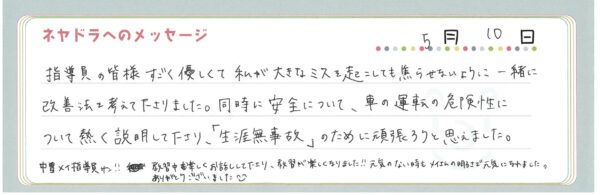 ネヤドラへのメッセージ
5月10日
指導員の皆様すごく優しくて私が大きなミスを起こしても焦らせないように一緒に
改善法を考えて下さりました。同時に安全について、車の運転の危険性に
ついて熱く説明して下さり、「生涯無事故」のために頑張ろうと思えました。
指導員へ!! 教習中も楽しくお話ししてくださり、教習が楽しくなりました!! 元気のない時も
明るさで元気になれました。
ありがとうございました